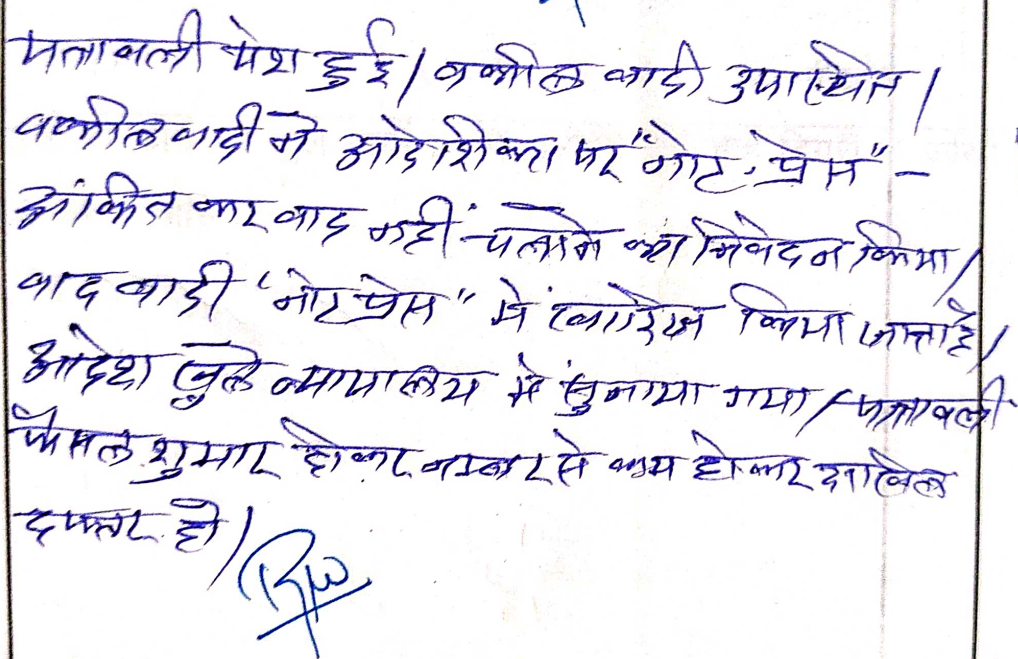 पत्रावली पेश हुई। वकील वादी उपस्थित।
वकील वादी ने आदेशिका पर "नोट प्रेस" -
अंकित कर वाद नहीं चलाने का निवेदन किया।
वाद वादी "नोट प्रेस" में खारिज किया जाता है।
आदेश खुले न्यायालय में सुनाया गया। पत्रावली
फैसल शुमार होकर नम्बर से कम होकर दाखिल
दफ्तर हो।